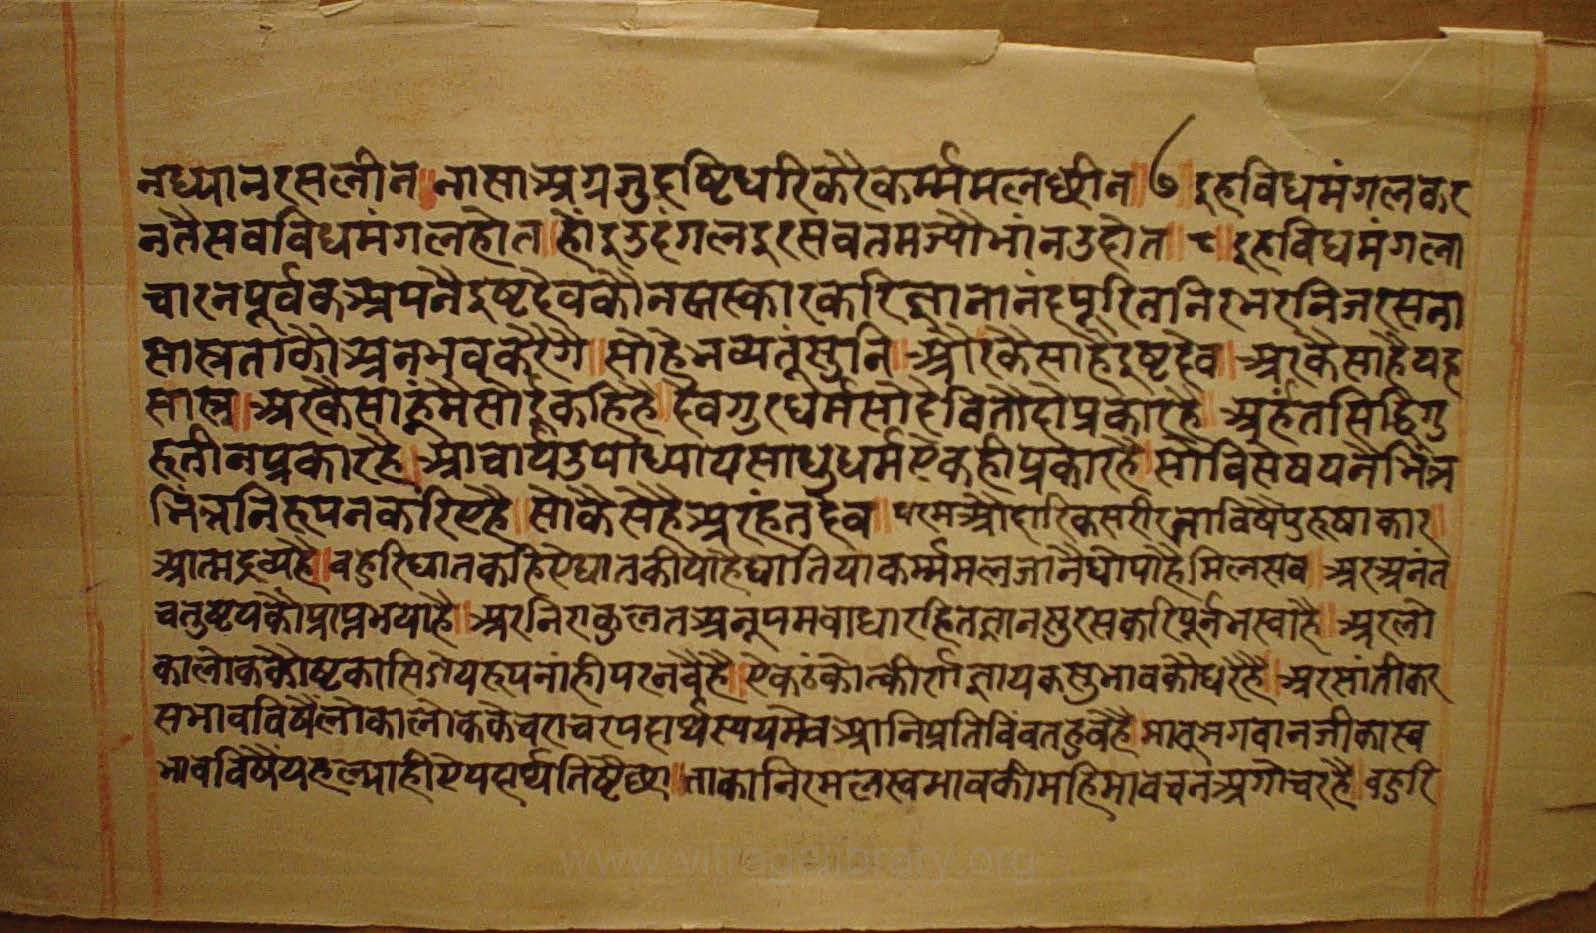 नध्यानरसलीन॥नासाअग्रजुद्रष्टिधरिकैरैकर्म्ममलछीन॥७॥इहविधमंगलकर
नतैसवविधमंगलहोत॥होंइउदंगलदूरसवतमज्यौभांनउद्दोत॥८॥इहविधमंगला
चारनपूर्वकअपनैइष्टदेवकौनमस्कारकरिज्ञानानंदपूरितनिरभरनिजरसना
सास्त्रताकौअनभवकरैगै॥सोहेभव्यतूंसुनि॥औरकैसाहैइष्टदेव॥अरकैसाहैयह
सास्त्र॥अरकैसाहूंमैसोईकहिहै॥देवगुरधर्मसोदेवितौदोप्रकारहै॥अरहंतसिद्धिगु
रूतीनप्रकारहै॥आचार्यउपाध्यायसाधुधर्मऐकहीप्रकारहै॥सोविसेषपनैभिन्न
भिन्ननिरूपनकरिऐहै॥सोकैसेहैअरहंतदेव॥परमऔदारिकसरीरताविषैपुरूषाकार॥
आत्मद्रव्यहै॥वहुरिघातकहिऐघातकीयाहैघातियाकर्म्ममलजानैधोयाहैमिलसव॥अरअनंत
चतुष्टयकौप्राप्तभयाहै॥अरनिराकुलतअनूपमवाधारहितज्ञानसुरसकरिपूर्नभस्याहै॥अरलो
कालोककौप्रकासिज्ञेयरूपनांहीपरनवैहै॥ऐकटंकोत्कीर्णज्ञायकसुभावकौधरैहै॥अरसांतीकर
सभावविषैलोकालोककेचराचरपदार्थस्वयमेवआनिप्रतिविंवतहुवैहै॥मानुंभगवानजीकास्व
भावविषैंयहल्याहीऐपदार्थतिष्टैछा॥ताकानिरमलस्वभावकीमहिमावचनअगोचरहै॥वहुरि
www.vitragelibrary.org